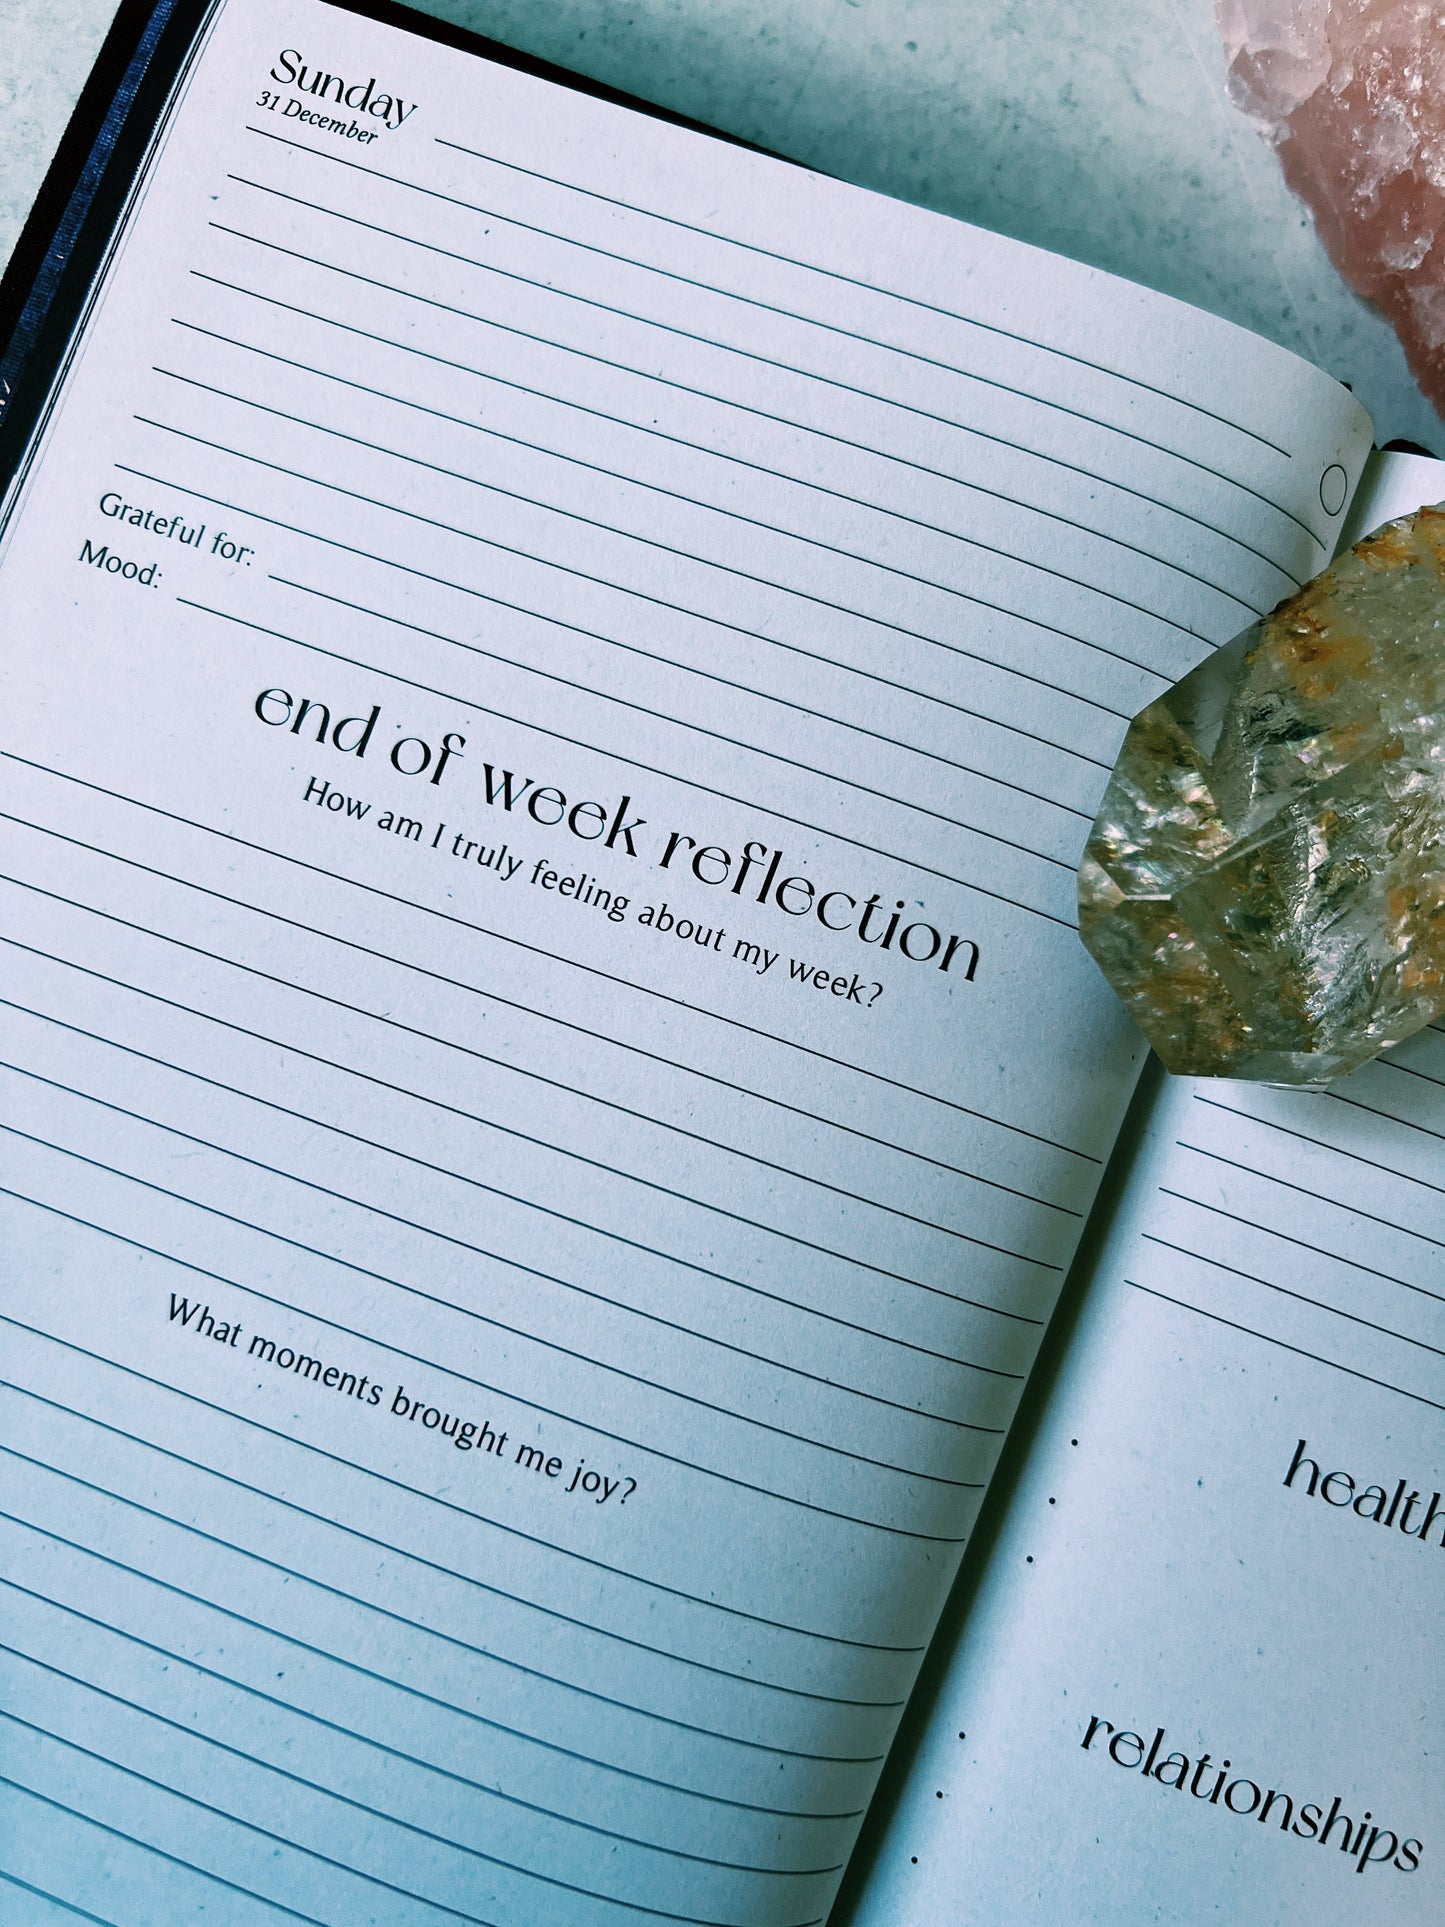 Sunday
31 December
Grateful for:
Mood:
end of week reflection
How am I truly feeling about my week?
What moments brought me joy?
health
relationships